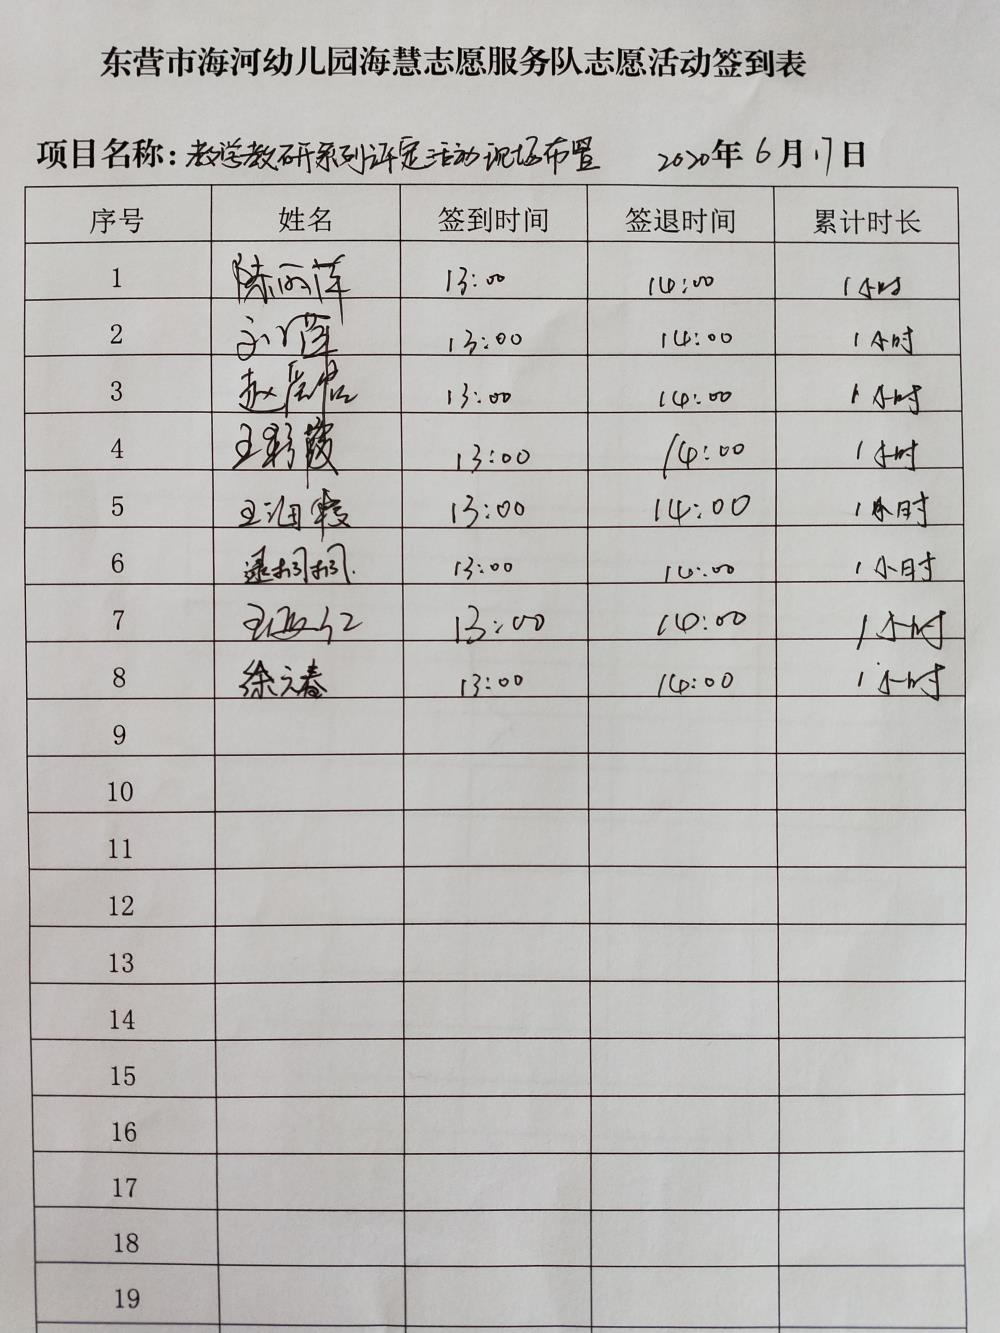 东营市海河幼儿园海慧志愿服务队志愿活动签到表
项目名称：教学教研系列评定活动现场布置 2020年6月17日
序号 姓名 签到时间 签退时间 累计时长
1 陈丽萍 13:00 14:00 1小时
2 13:00 14:00 1小时
3 赵 13:00 14:00 1小时
4 王彩霞 13:00 14:00 1小时
5 王海霞 13:00 14:00 1小时
6 逯栩栩 13:00 14:00 1小时
7 王 13:00 14:00 1小时
8 徐元春 13:00 14:00 1小时
9
10
11
12
13
14
15
16
17
18
19